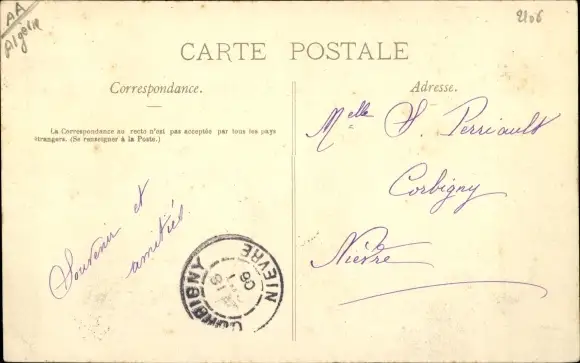 AA
Algérie
2106
CARTE POSTALE
Correspondance.
Adresse.
La Correspondance au recto n'est pas acceptée par tous les pays
étrangers. (Se renseigner à la Poste.)
Melle S. Perriault
Corbigny
Nièvre
Souvenir et
amitiés
CORBIGNY
NIEVRE
18
06